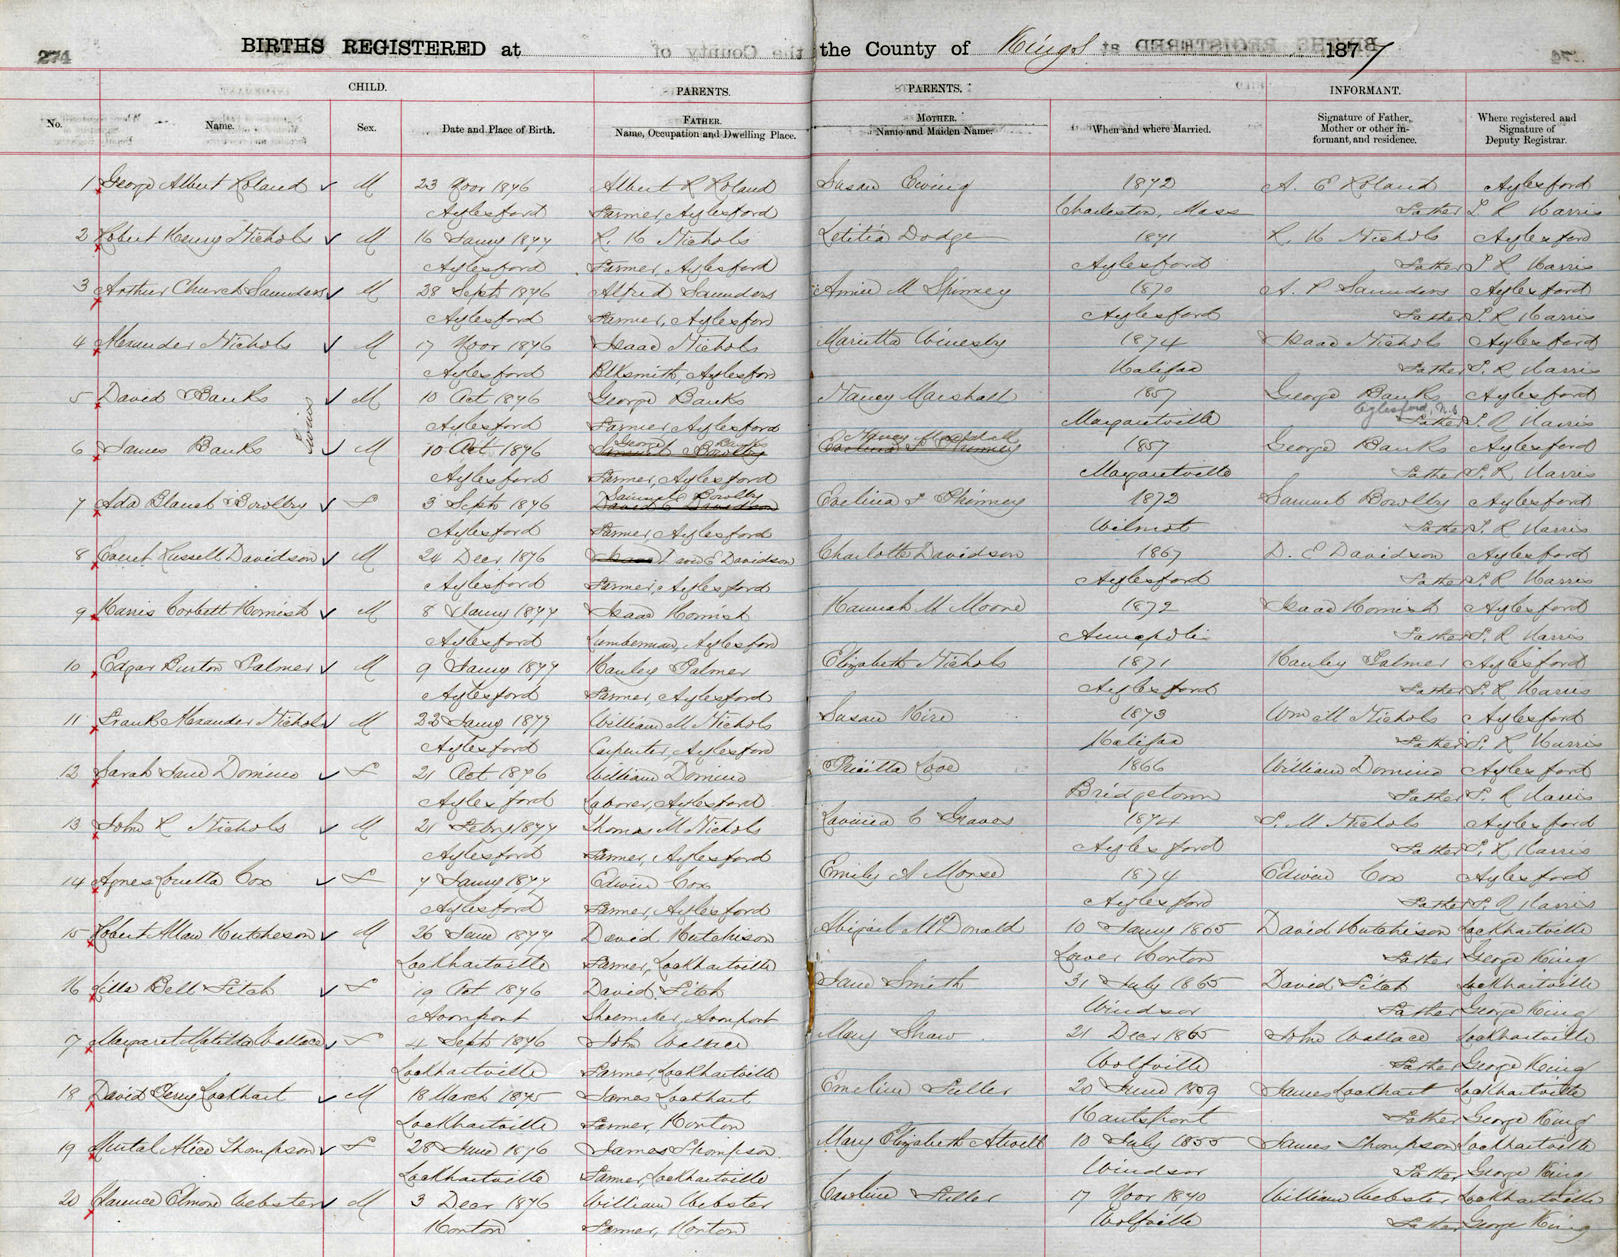 274
BIRTHS REGISTERED at the County of Kings 1877
CHILD. PARENTS. PARENTS. INFORMANT.
No. Name. Sex. Date and Place of Birth. FATHER. Name, Occupation and Dwelling Place. MOTHER. Name and Maiden Name. When and where Married. Signature of Father, Mother or other informant, and residence. Where registered and Signature of Deputy Registrar.
1 George Albert Roland M 23 Novr 1876 Albert R Roland Susan Ewing 1872 A. E Roland Aylesford
Aylesford Farmer, Aylesford Charleston, Mass Father T. R Harris
2 Robert Henry Nichols M 16 Janry 1877 R. H Nichols Letitia Dodge 1871 R. H Nichols Aylesford
Aylesford Farmer, Aylesford Aylesford Father T R Harris
3 Arthur Church Saunders M 28 Sept 1876 Alfred Saunders Annie M Spinney 1870 A. P Saunders Aylesford
Aylesford Farmer, Aylesford Aylesford Father T. R Harris
4 Alexander Nichols M 17 Novr 1876 Isaac Nichols Marietta 1874 Isaac Nichols Aylesford
Aylesford Blksmith, Aylesford Halifax Father T. R Harris
5 David Banks M 10 Oct 1876 George Banks Nancy Marshall 1857 George Banks Aylesford
Aylesford, N.S
Twins
Aylesford Farmer Aylesford Margaretville Father T. R Harris
George Banks Nancy Marshall
6 James Banks M 10 Oct 1876 Samuel Bowlby 1857 George Banks Aylesford
Aylesford Farmer, Aylesford Margaretville Father T. R Harris
Samuel Bowlby
7 Ada Blanch Bowlby F 3 Sept 1876 David E Davidson Evelina F Phinney 1872 Samuel Bowlby Aylesford
Aylesford Farmer, Aylesford Wilmot Father T. R Harris
8 Everet Russell Davidson M 24 Decr 1876 E Davidson Charlotte Davidson 1867 D. E Davidson Aylesford
Aylesford Farmer, Aylesford Aylesford Father T. R Harris
9 Harris Corbett Hornish M 8 Janry 1877 Isaac Hornish Hannah M Moore 1872 Isaac Hornish Aylesford
Aylesford Lumberman, Aylesford Annapolis Father T. R Harris
10 Edgar Burton Palmer M 9 Janry 1877 Hanley Palmer Elizabeth Nichols 1871 Hanley Palmer Aylesford
Aylesford Farmer, Aylesford Aylesford Father T. R Harris
11 Frank Alexander Nichols M 22 Janry 1877 William M Nichols Susan 1873 Wm M Nichols Aylesford
Aylesford Carpenter, Aylesford Halifax Father T. R Harris
12 Sarah Jane Domino F 21 Oct 1876 William Domino Love 1866 William Domino Aylesford
Aylesford Laborer, Aylesford Bridgetown Father T. R Harris
13 John R Nichols M 21 Febry 1877 Thomas M Nichols Lavinia C Graves 1874 T. M Nichols Aylesford
Aylesford Farmer, Aylesford Aylesford Father T. R Harris
14 Agnes Louetta Cox F 7 Janry 1877 Edwin Cox Emily A Morse 1874 Edwin Cox Aylesford
Aylesford Farmer, Aylesford Aylesford Father T. R Harris
15 Robert Allan Hutcheson M 26 June 1877 David Hutchison Abigail McDonald 10 Janry 1865 David Hutchison Lockhartville
Lockhartville Farmer, Lockhartville Lower Horton Father George King
16 Lilla Bell Fitch F 19 Oct 1876 David Fitch Jane Smith 31 July 1865 David Fitch Lockhartville
Avonport Shoemaker, Avonport Windsor Father George King
17 Margaret Matilda Wallace F 4 Sept 1876 John Wallace Mary Shaw 21 Decr 1865 John Wallace Lockhartville
Lockhartville Farmer, Lockhartville Wolfville Father George King
18 David Perry Lockhart M 18 March 1875 James Lockhart Emeline Fuller 20 June 1859 James Lockhart Lockhartville
Lockhartville Farmer, Horton Hantsport Father George King
19 Alice Thompson F 28 June 1876 James Thompson Mary Elizabeth Atwell 10 July 1855 James Thompson Lockhartville
Lockhartville Farmer, Lockhartville Windsor Father George King
20 Clarence Elmore Webster M 3 Decr 1876 William Webster Caroline Fuller 17 Novr William Webster Lockhartville
Horton Farmer, Horton Wolfville Father George King